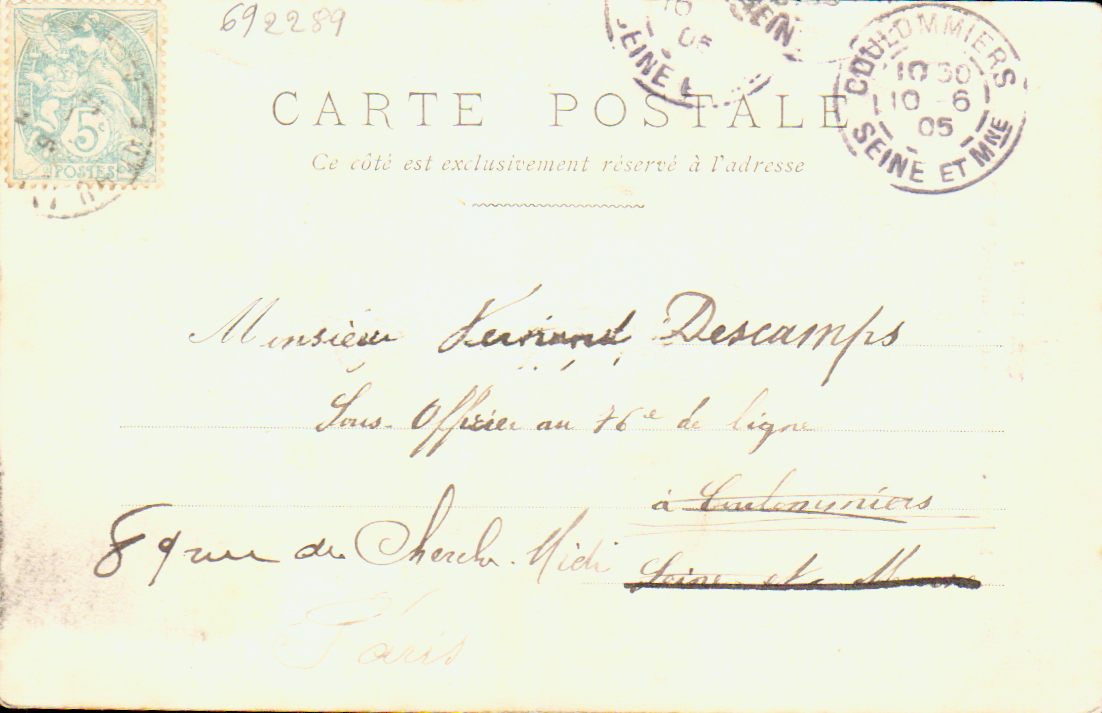 692289
5c
POSTES
10
05
SEINE
SEINE
COULOMMIERS
10 30
10 - 6
05
SEINE ET MNE
CARTE POSTALE
Ce côté est exclusivement réservé à l'adresse
Monsieur Fernand Descamps
Sous-Officier au 76e de ligne
à Coulommiers
89 rue du Cherche-Midi
Seine et Marne
Paris